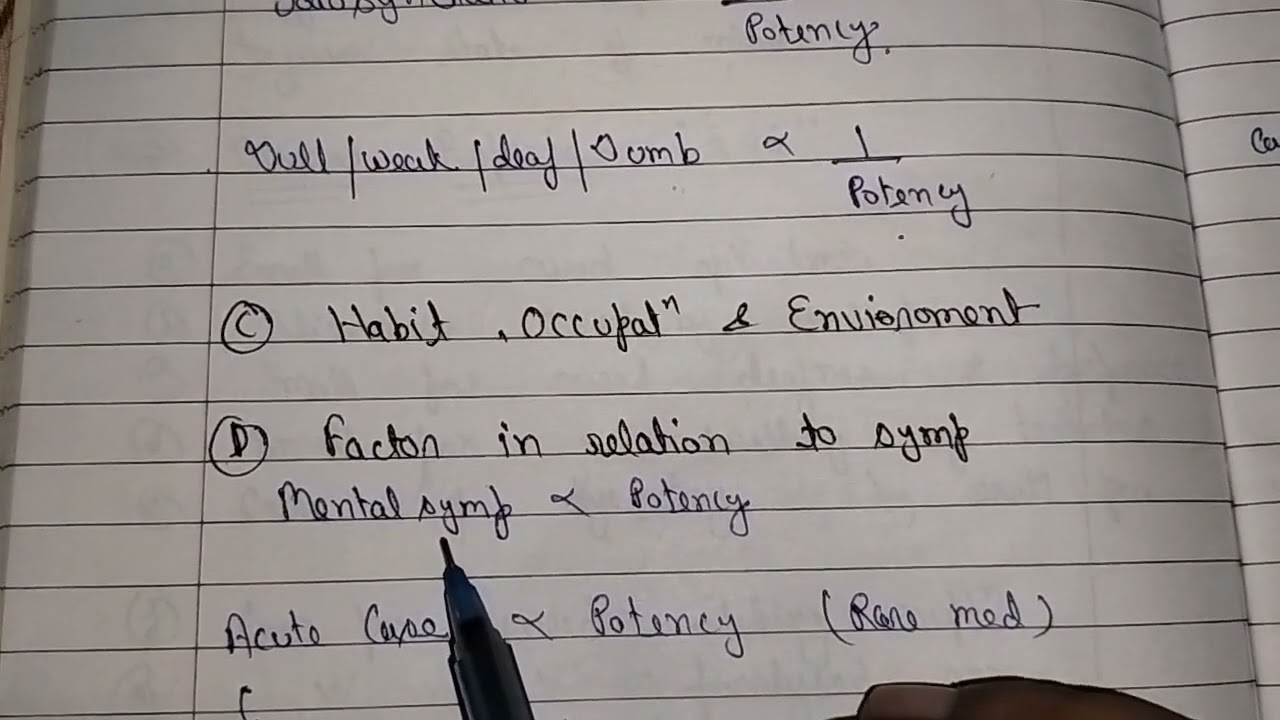 Potency.
Dull / weak / deaf / Dumb ∝ 1 / Potency
Ⓒ Habit, Occupatⁿ & Envioronment
Ⓓ factor in relation to symp
Mental symp ∝ Potency
Acute Case ∝ Potency (Rare med)